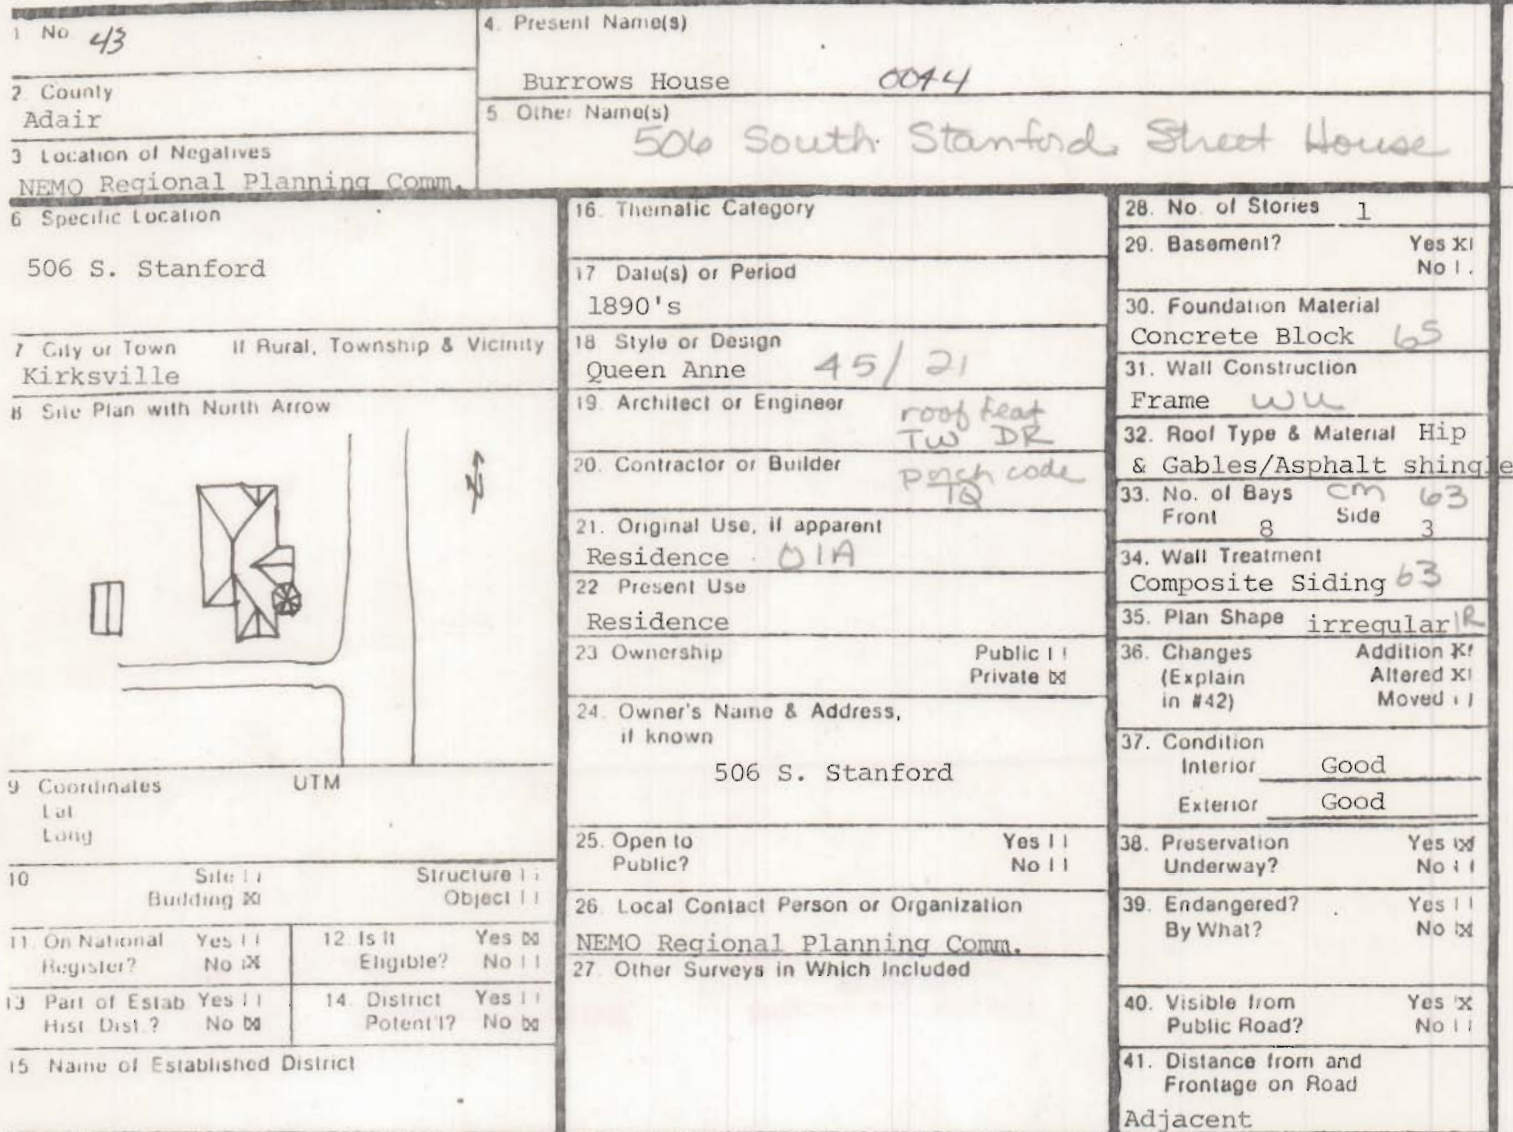 1 No 43
2 County
Adair
3 Location of Negatives
NEMO Regional Planning Comm.
4. Present Name(s)
Burrows House 0044
5 Other Name(s)
506 South Stanford Street House
6 Specific Location
506 S. Stanford
7 City or Town If Rural, Township & Vicinity
Kirksville
8 Site Plan with North Arrow
N
9 Coordinates UTM
Lat
Long
10 Site Structure
Building X Object
11. On National Yes
Register? No X
12. Is It Yes X
Eligible? No
13 Part of Estab Yes
Hist Dist.? No X
14. District Yes
Potent'l? No X
15 Name of Established District
16. Thematic Category
17 Date(s) or Period
1890's
18 Style or Design
Queen Anne 45/21
19. Architect or Engineer
roof feat
TW DR
20. Contractor or Builder
porch code
TQ
21. Original Use, if apparent
Residence 01A
22 Present Use
Residence
23 Ownership Public
Private X
24. Owner's Name & Address,
if known
506 S. Stanford
25. Open to Yes
Public? No
26. Local Contact Person or Organization
NEMO Regional Planning Comm.
27. Other Surveys in Which Included
28. No. of Stories 1
29. Basement? Yes X
No
30. Foundation Material
Concrete Block 65
31. Wall Construction
Frame WU
32. Roof Type & Material Hip
& Gables/Asphalt shingle
33. No. of Bays CM 63
Front 8 Side 3
34. Wall Treatment
Composite Siding 63
35. Plan Shape irregular IR
36. Changes Addition X
(Explain Altered X
in #42) Moved
37. Condition
Interior Good
Exterior Good
38. Preservation Yes X
Underway? No
39. Endangered? Yes
By What? No X
40. Visible from Yes X
Public Road? No
41. Distance from and
Frontage on Road
Adjacent